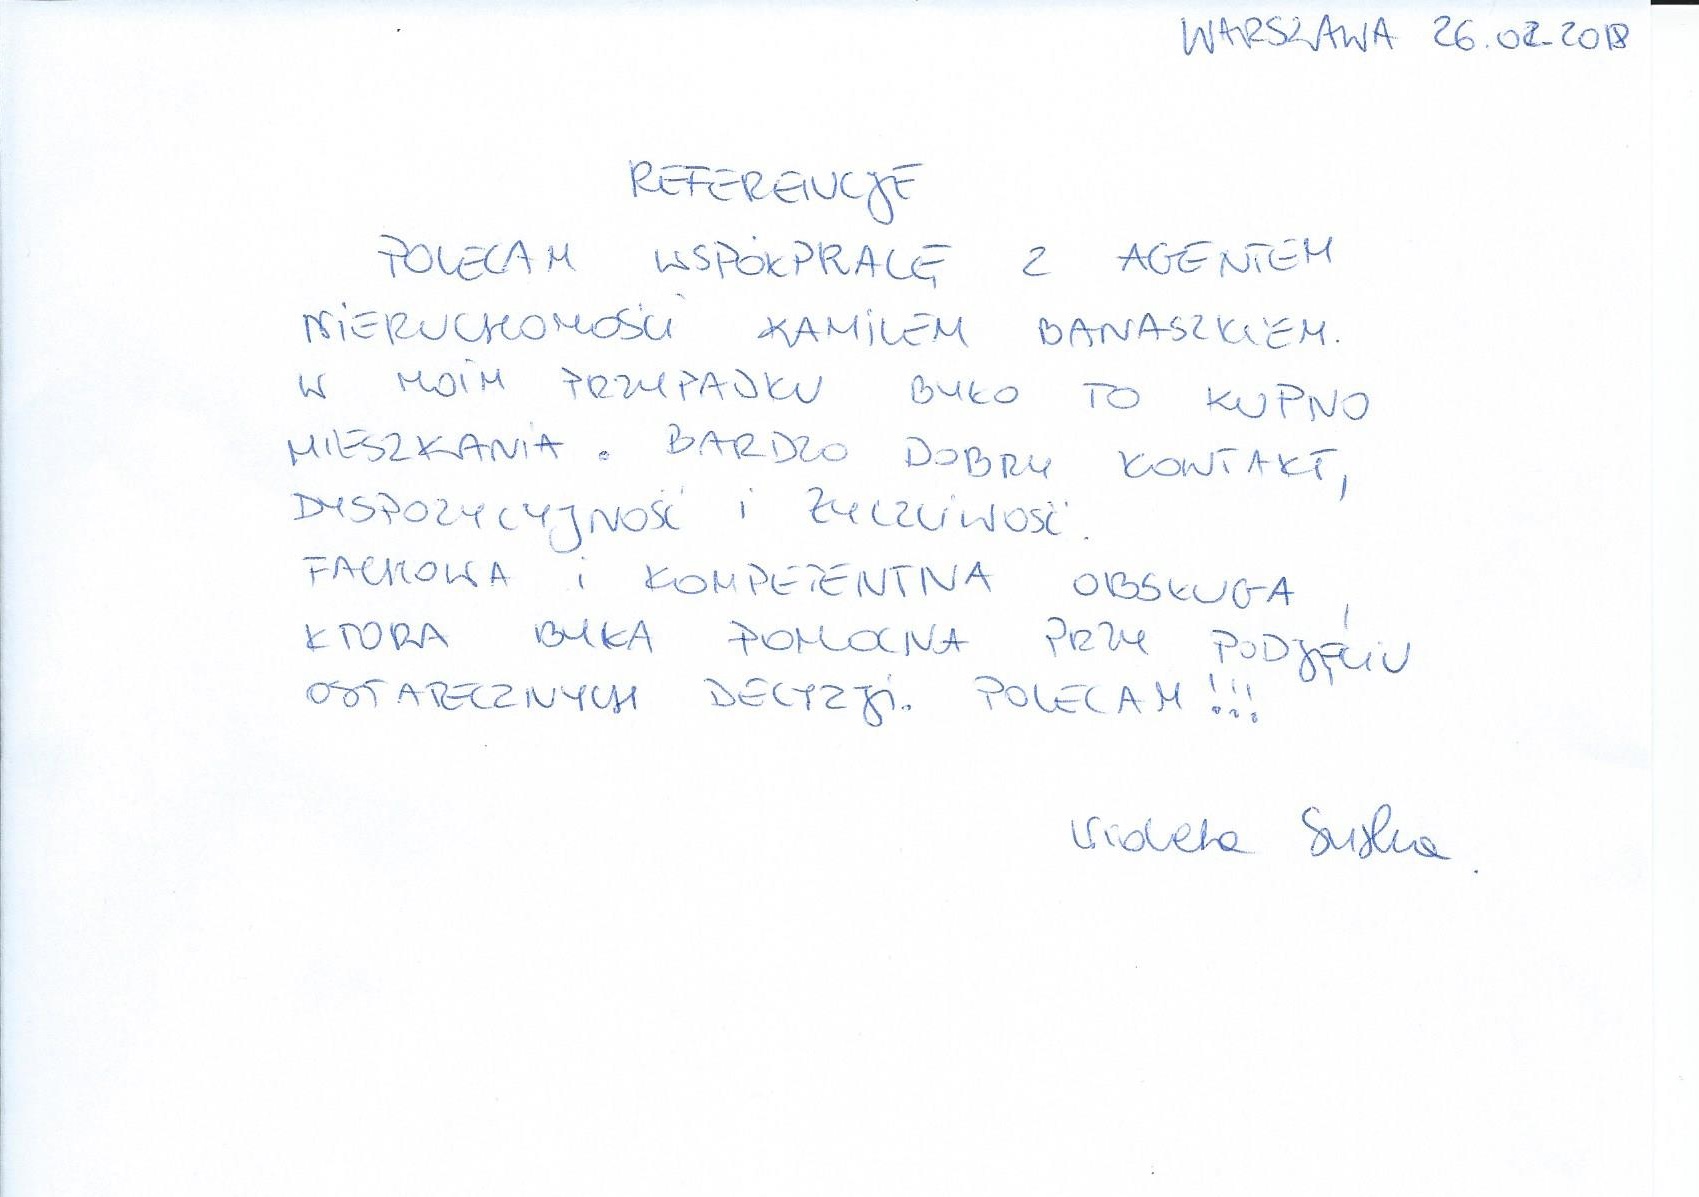 WARSZAWA 26.02.2018
REFERENCJE
POLECAM WSPÓŁPRACĘ Z AGENTEM
NIERUCHOMOŚCI KAMILEM BANASZKIEM.
W MOIM PRZYPADKU BYŁO TO KUPNO
MIESZKANIA. BARDZO DOBRY KONTAKT,
DYSPOZYCYJNOŚĆ I ŻYCZLIWOŚĆ.
FACHOWA I KOMPETENTNA OBSŁUGA,
KTORA BYŁA POMOCNA PRZY PODJĘCIU
OSTATECZNYCH DECYZJI. POLECAM!!!
Violeta